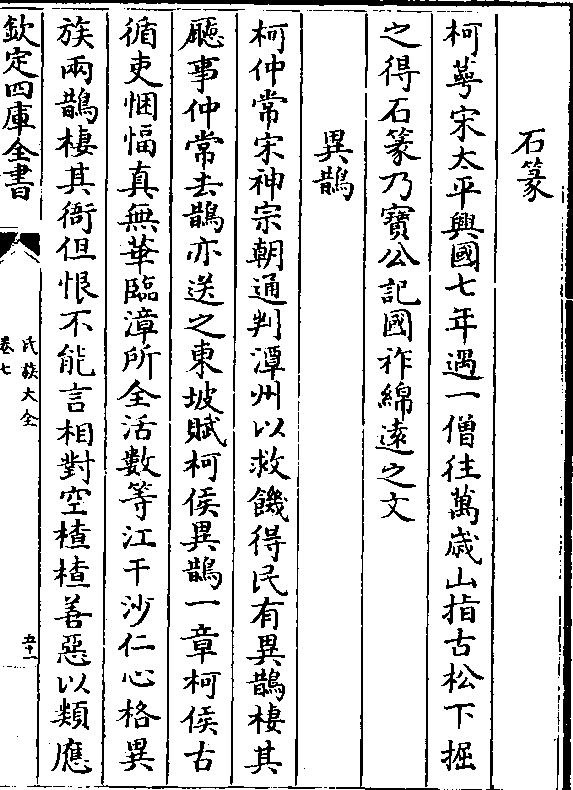 石篆
柯蕚宋太平興國七年遇一僧往萬歳山指古松下掘
之得石篆乃寳公記國祚綿逺之文
異鵲
柯仲常宋神宗朝通判潭州以救饑得民有異鵲棲其
廳事仲常去鵲亦送之東坡賦柯侯異鵲一章柯侯古
循吏悃愊真無華臨漳所全活數等江干沙仁心格異
族兩鵲棲其衙但恨不能言相對空楂楂善惡以類應
欽定四庫全書
氏族大全
卷七
五十二